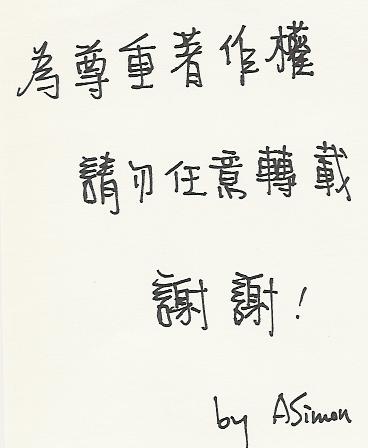 為尊重著作權
請勿任意轉載
謝謝!
by ASimon